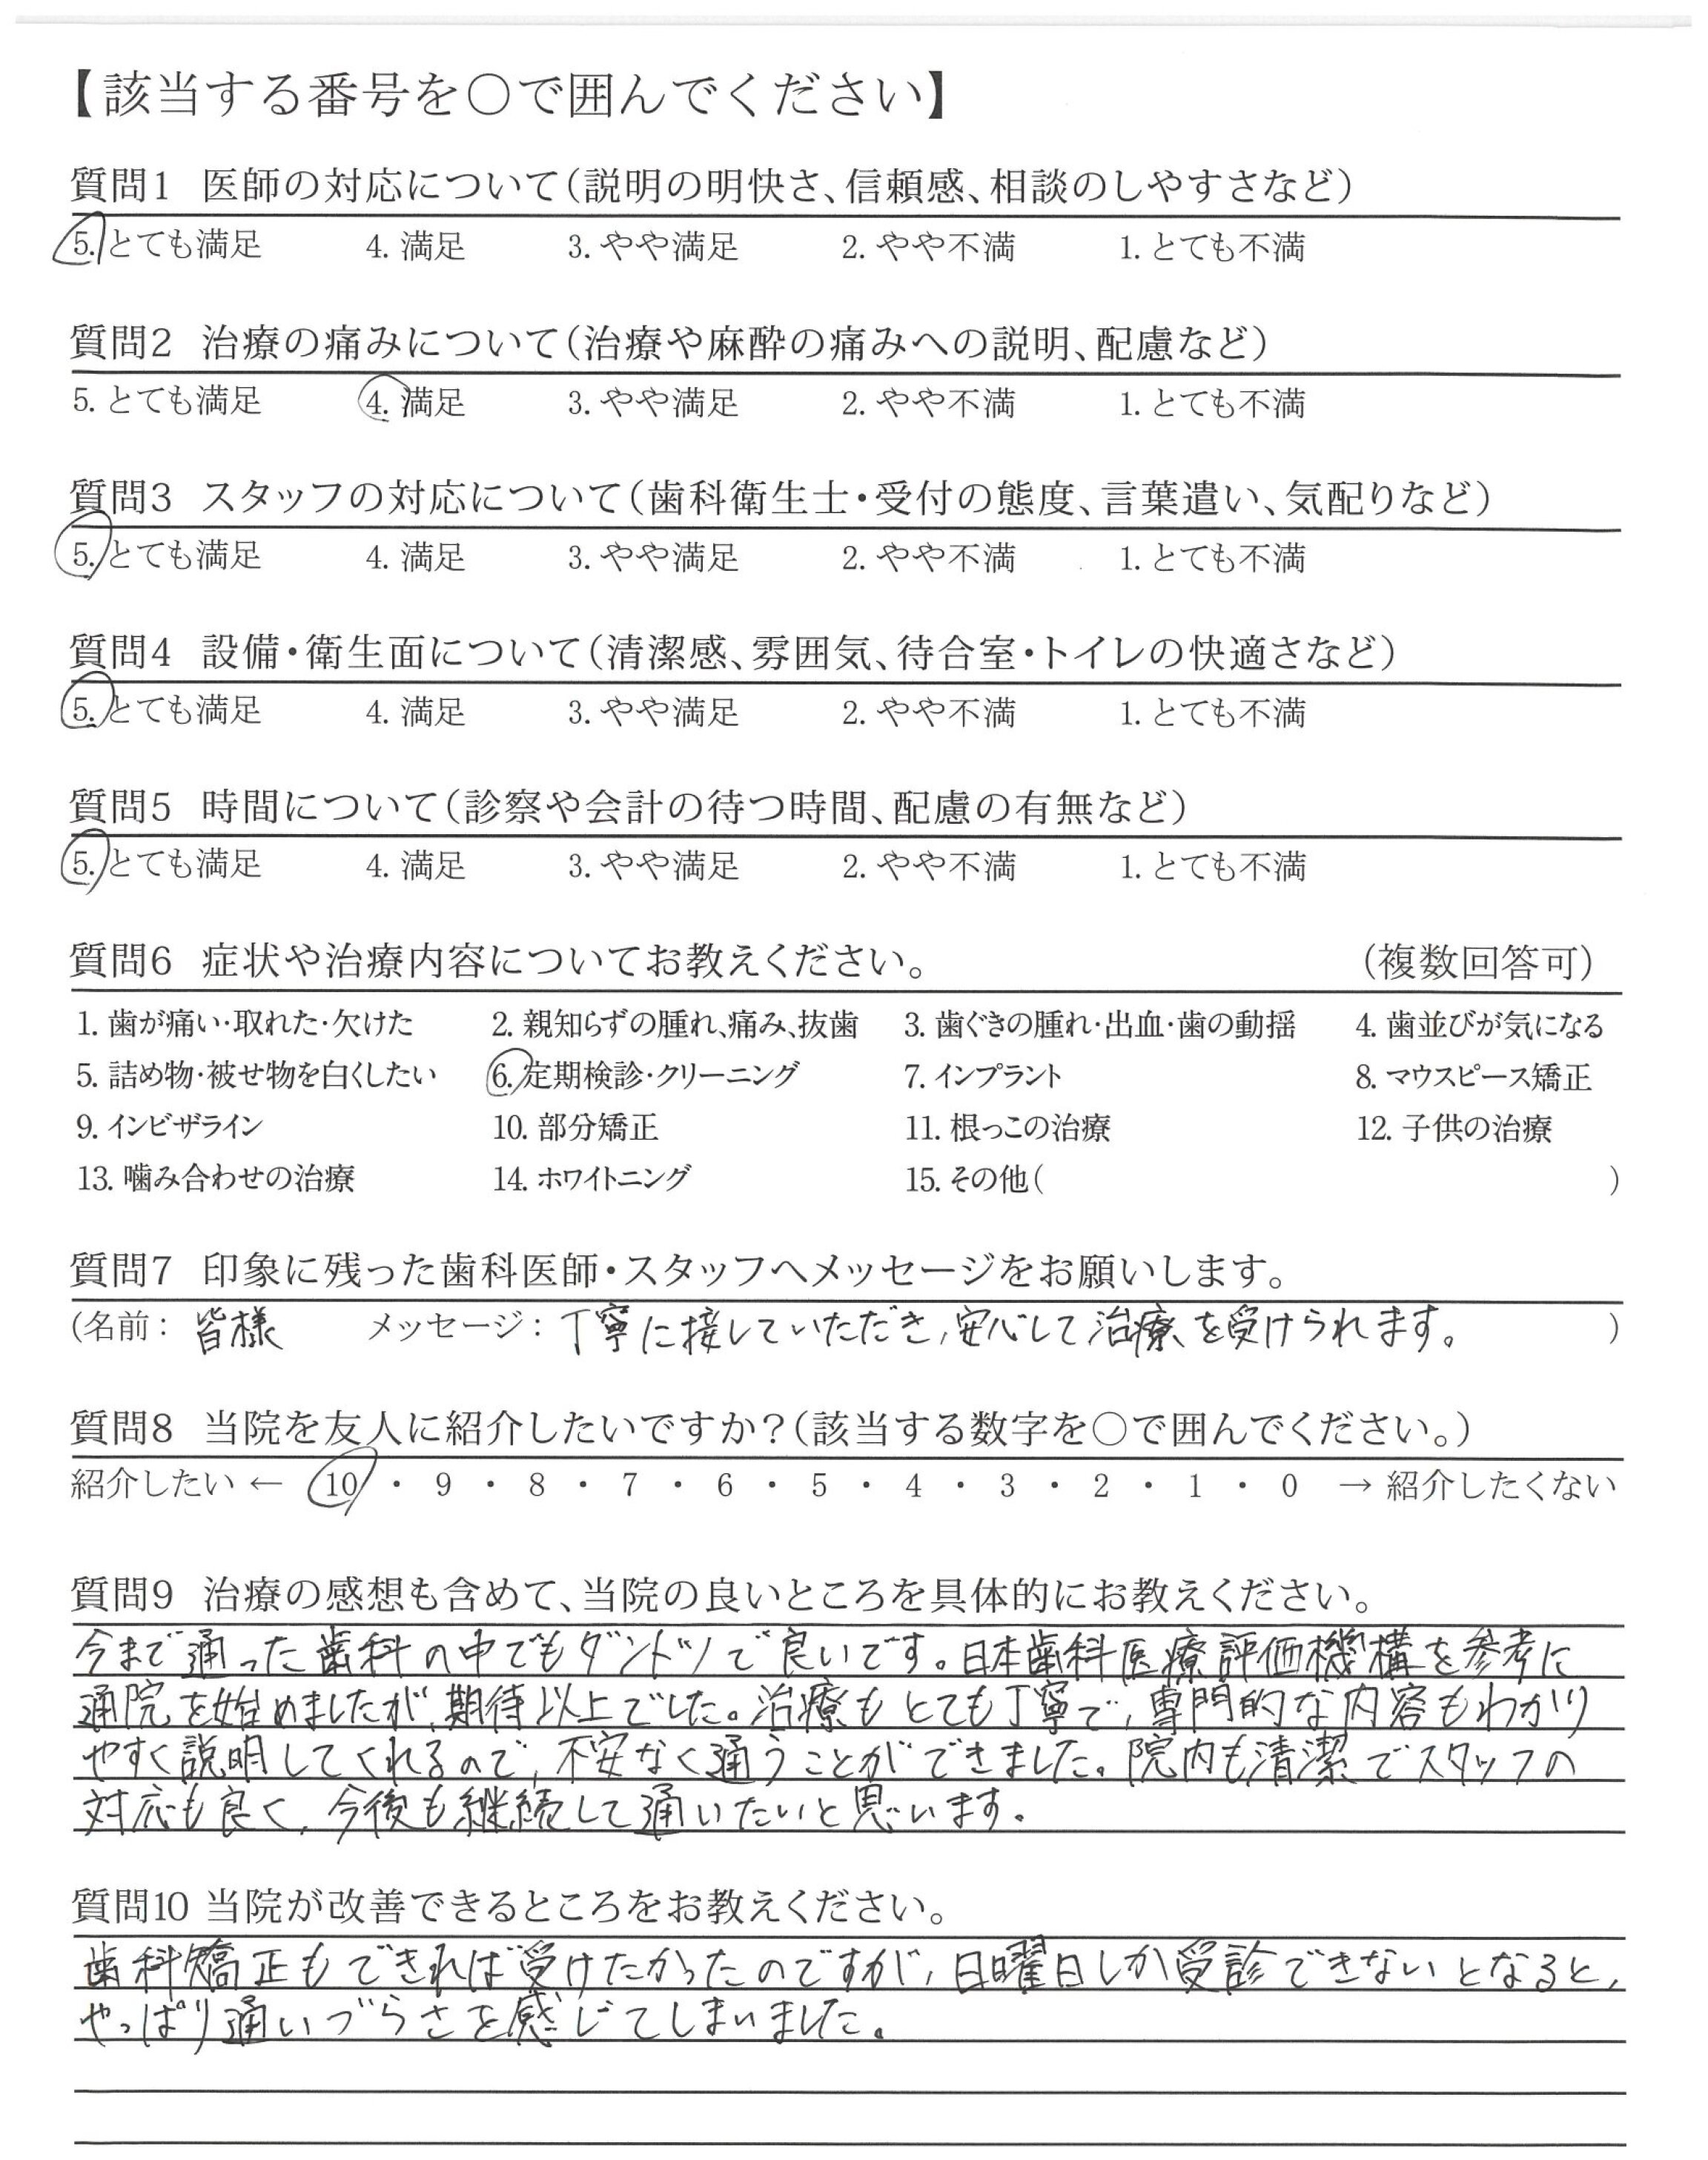 【該当する番号を○で囲んでください】
質問1 医師の対応について(説明の明快さ、信頼感、相談のしやすさなど)
5. とても満足 4. 満足 3. やや満足 2. やや不満 1. とても不満
質問2 治療の痛みについて(治療や麻酔の痛みへの説明、配慮など)
5. とても満足 4. 満足 3. やや満足 2. やや不満 1. とても不満
質問3 スタッフの対応について(歯科衛生士・受付の態度、言葉遣い、気配りなど)
5. とても満足 4. 満足 3. やや満足 2. やや不満 1. とても不満
質問4 設備・衛生面について(清潔感、雰囲気、待合室・トイレの快適さなど)
5. とても満足 4. 満足 3. やや満足 2. やや不満 1. とても不満
質問5 時間について(診察や会計の待つ時間、配慮の有無など)
5. とても満足 4. 満足 3. やや満足 2. やや不満 1. とても不満
質問6 症状や治療内容についてお教えください。 (複数回答可)
1. 歯が痛い・取れた・欠けた 2. 親知らずの腫れ、痛み、抜歯 3. 歯ぐきの腫れ・出血・歯の動揺 4. 歯並びが気になる
5. 詰め物・被せ物を白くしたい 6. 定期検診・クリーニング 7. インプラント 8. マウスピース矯正
9. インビザライン 10. 部分矯正 11. 根っこの治療 12. 子供の治療
13. 噛み合わせの治療 14. ホワイトニング 15. その他( )
質問7 印象に残った歯科医師・スタッフへメッセージをお願いします。
(名前: 皆様 メッセージ: 丁寧に接していただき、安心して治療を受けられます。 )
質問8 当院を友人に紹介したいですか?(該当する数字を○で囲んでください。)
紹介したい ← 10 ・ 9 ・ 8 ・ 7 ・ 6 ・ 5 ・ 4 ・ 3 ・ 2 ・ 1 ・ 0 → 紹介したくない
質問9 治療の感想も含めて、当院の良いところを具体的にお教えください。
今まで通った歯科の中でもダントツで良いです。日本歯科医療評価機構を参考に
通院を始めましたが、期待以上でした。治療もとても丁寧で、専門的な内容もわかり
やすく説明してくれるので、不安なく通うことができました。院内も清潔でスタッフの
対応も良く、今後も継続して通いたいと思います。
質問10 当院が改善できるところをお教えください。
歯科矯正もできれば受けたかったのですが、日曜日しか受診できないとなると、
やっぱり通いづらさを感じてしまいました。